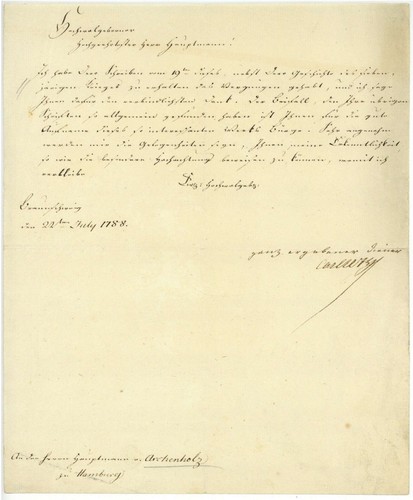 Hochwolgeborner
Hochgeehrtester Herr Hauptmann!
Ich habe Dero Schreiben vom 19ten dieses, nebst der Geschichte des sieben-
jährigen Kriegs zu erhalten das Vergnügen gehabt, und ich sage
Ihnen dafür den verbindlichsten Dank. Der Beifall, den Ihre übrigen
Schriften so allgemein gefunden haben ist Ihnen für die gute
Aufnahme dieses so interessanten Werks Bürge. Sehr angenehm
werden mir die Gelegenheiten seyn, Ihnen meine Erkenntlichkeit
so wie die besondere Hochachtung beweisen zu können, womit ich
verbleibe
Hochwolgeb:
Braunschweig
den 22ten July 1788.
ganz ergebener Diener
An den Herrn Hauptmann v. Archenholz
zu Hamburg